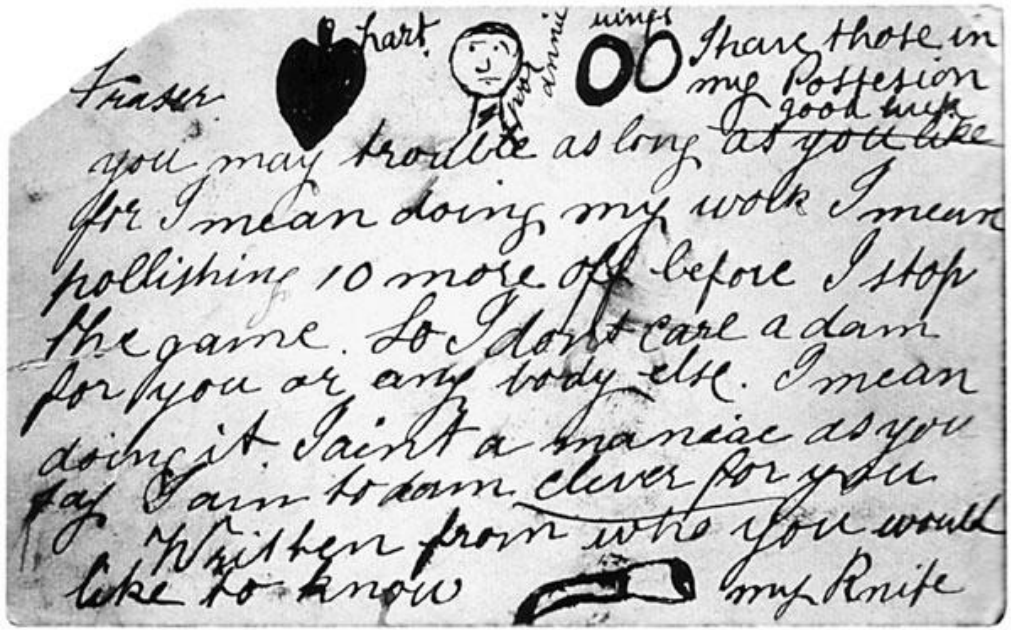 hart rings I have those in
Fraser poor annie my Possesion
good luck
you may trouble as long as you like
for I mean doing my work I mean
pollishing 10 more off before I stop
the game. So I dont care a dam
for you or any body else. I mean
doing it I aint a maniac as you
say I am to dam clever for you
Written from who you would
like to know my Knife